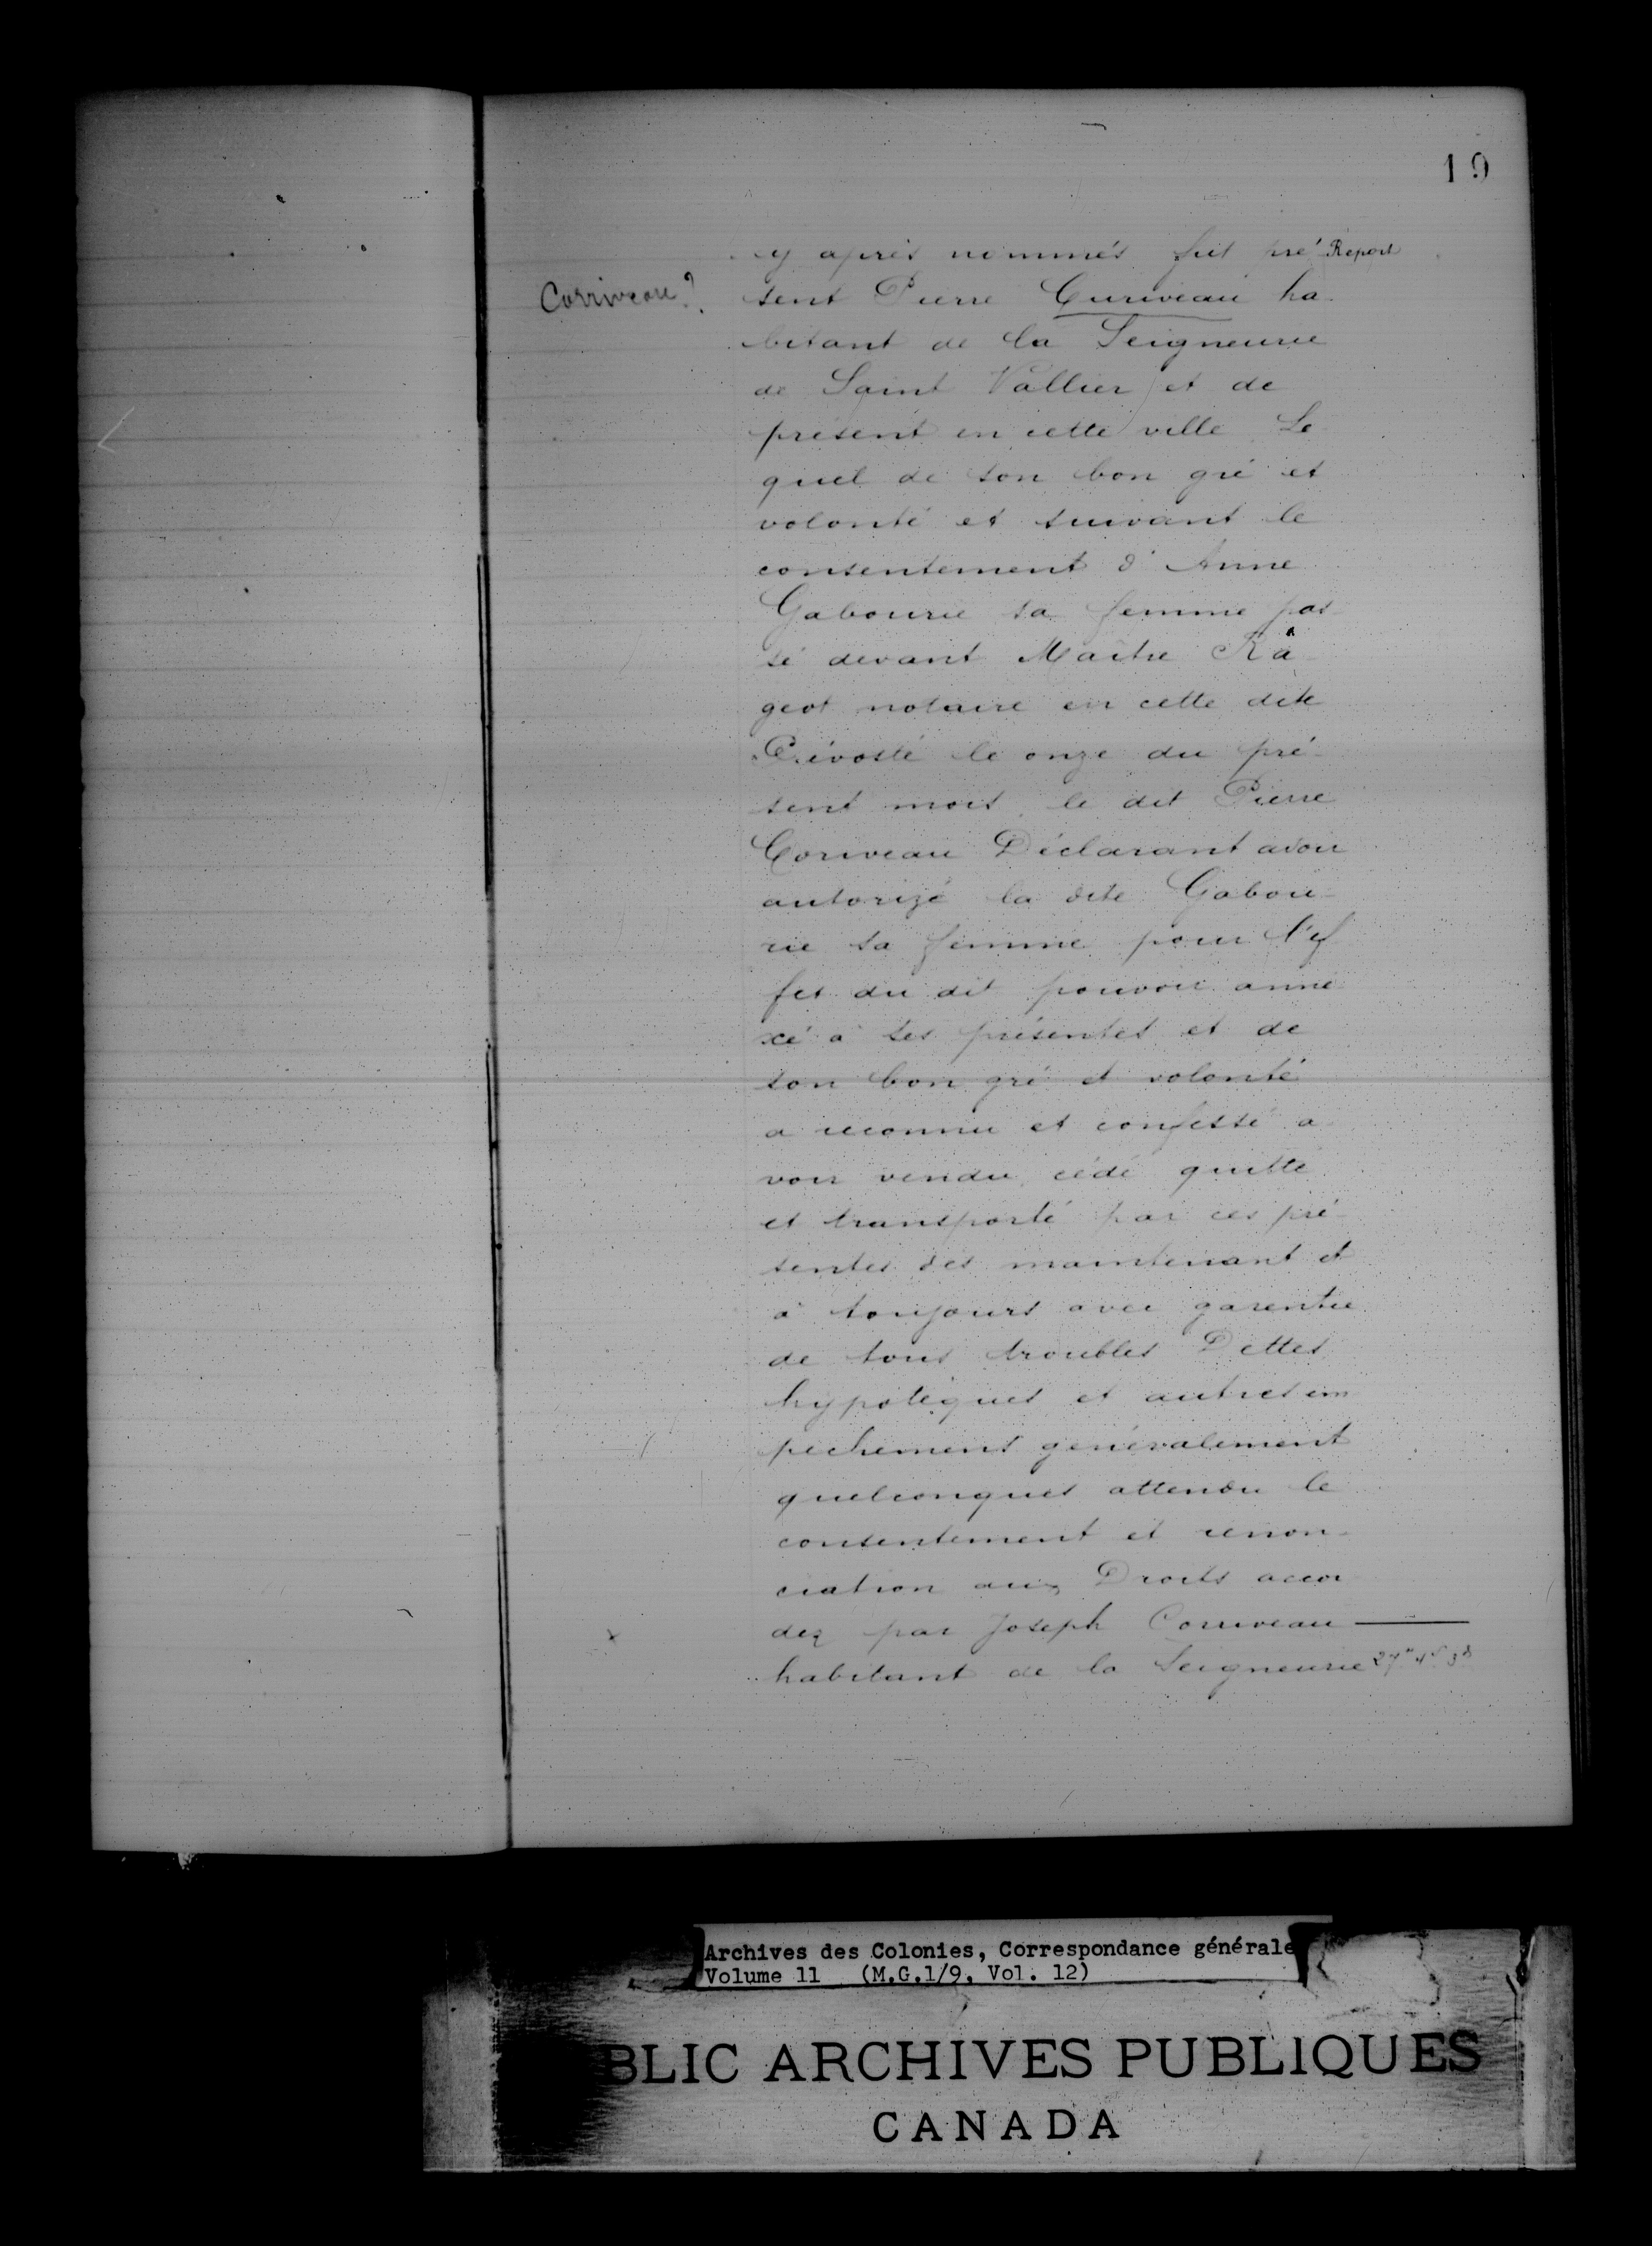 19
cy après nommés fut pré Report
Corriveau?
sent Pierre Curiveau ha-
bitant de la Seigneurie
de Saint Vallier et de
présent en cette ville Le
quel de son bon gré et
volonté et suivant le
consentement d'Anne
Gabourie sa femme pas
sé devant Maître Râ
geot notaire en cette dite
Prévosté le onze du pré-
sent mois, le dit Pierre
Coriveau Déclarant avoir
autorizé la dite Gabou-
rie sa femme pour l'ef
fet du dit pouvoir anne
xé à ses présentes et de
son bon gré et volonté
a reconnu et confessé a
voir vendu, cédé quitté
et transporté par ces pré-
sentes dès maintenant et
à toujours avec garentie
de tous troubles Dettes
hypotèques et autres em
pechement généralement
quelconques attendu le
consentement et renon-
ciation aux Droits accor
dez par Joseph Corriveau
habitant de la Seigneurie 27" 4s 3d
Archives des Colonies, Correspondance générale
Volume 11 (M.G.1/9, Vol. 12)
BLIC ARCHIVES PUBLIQUES
CANADA